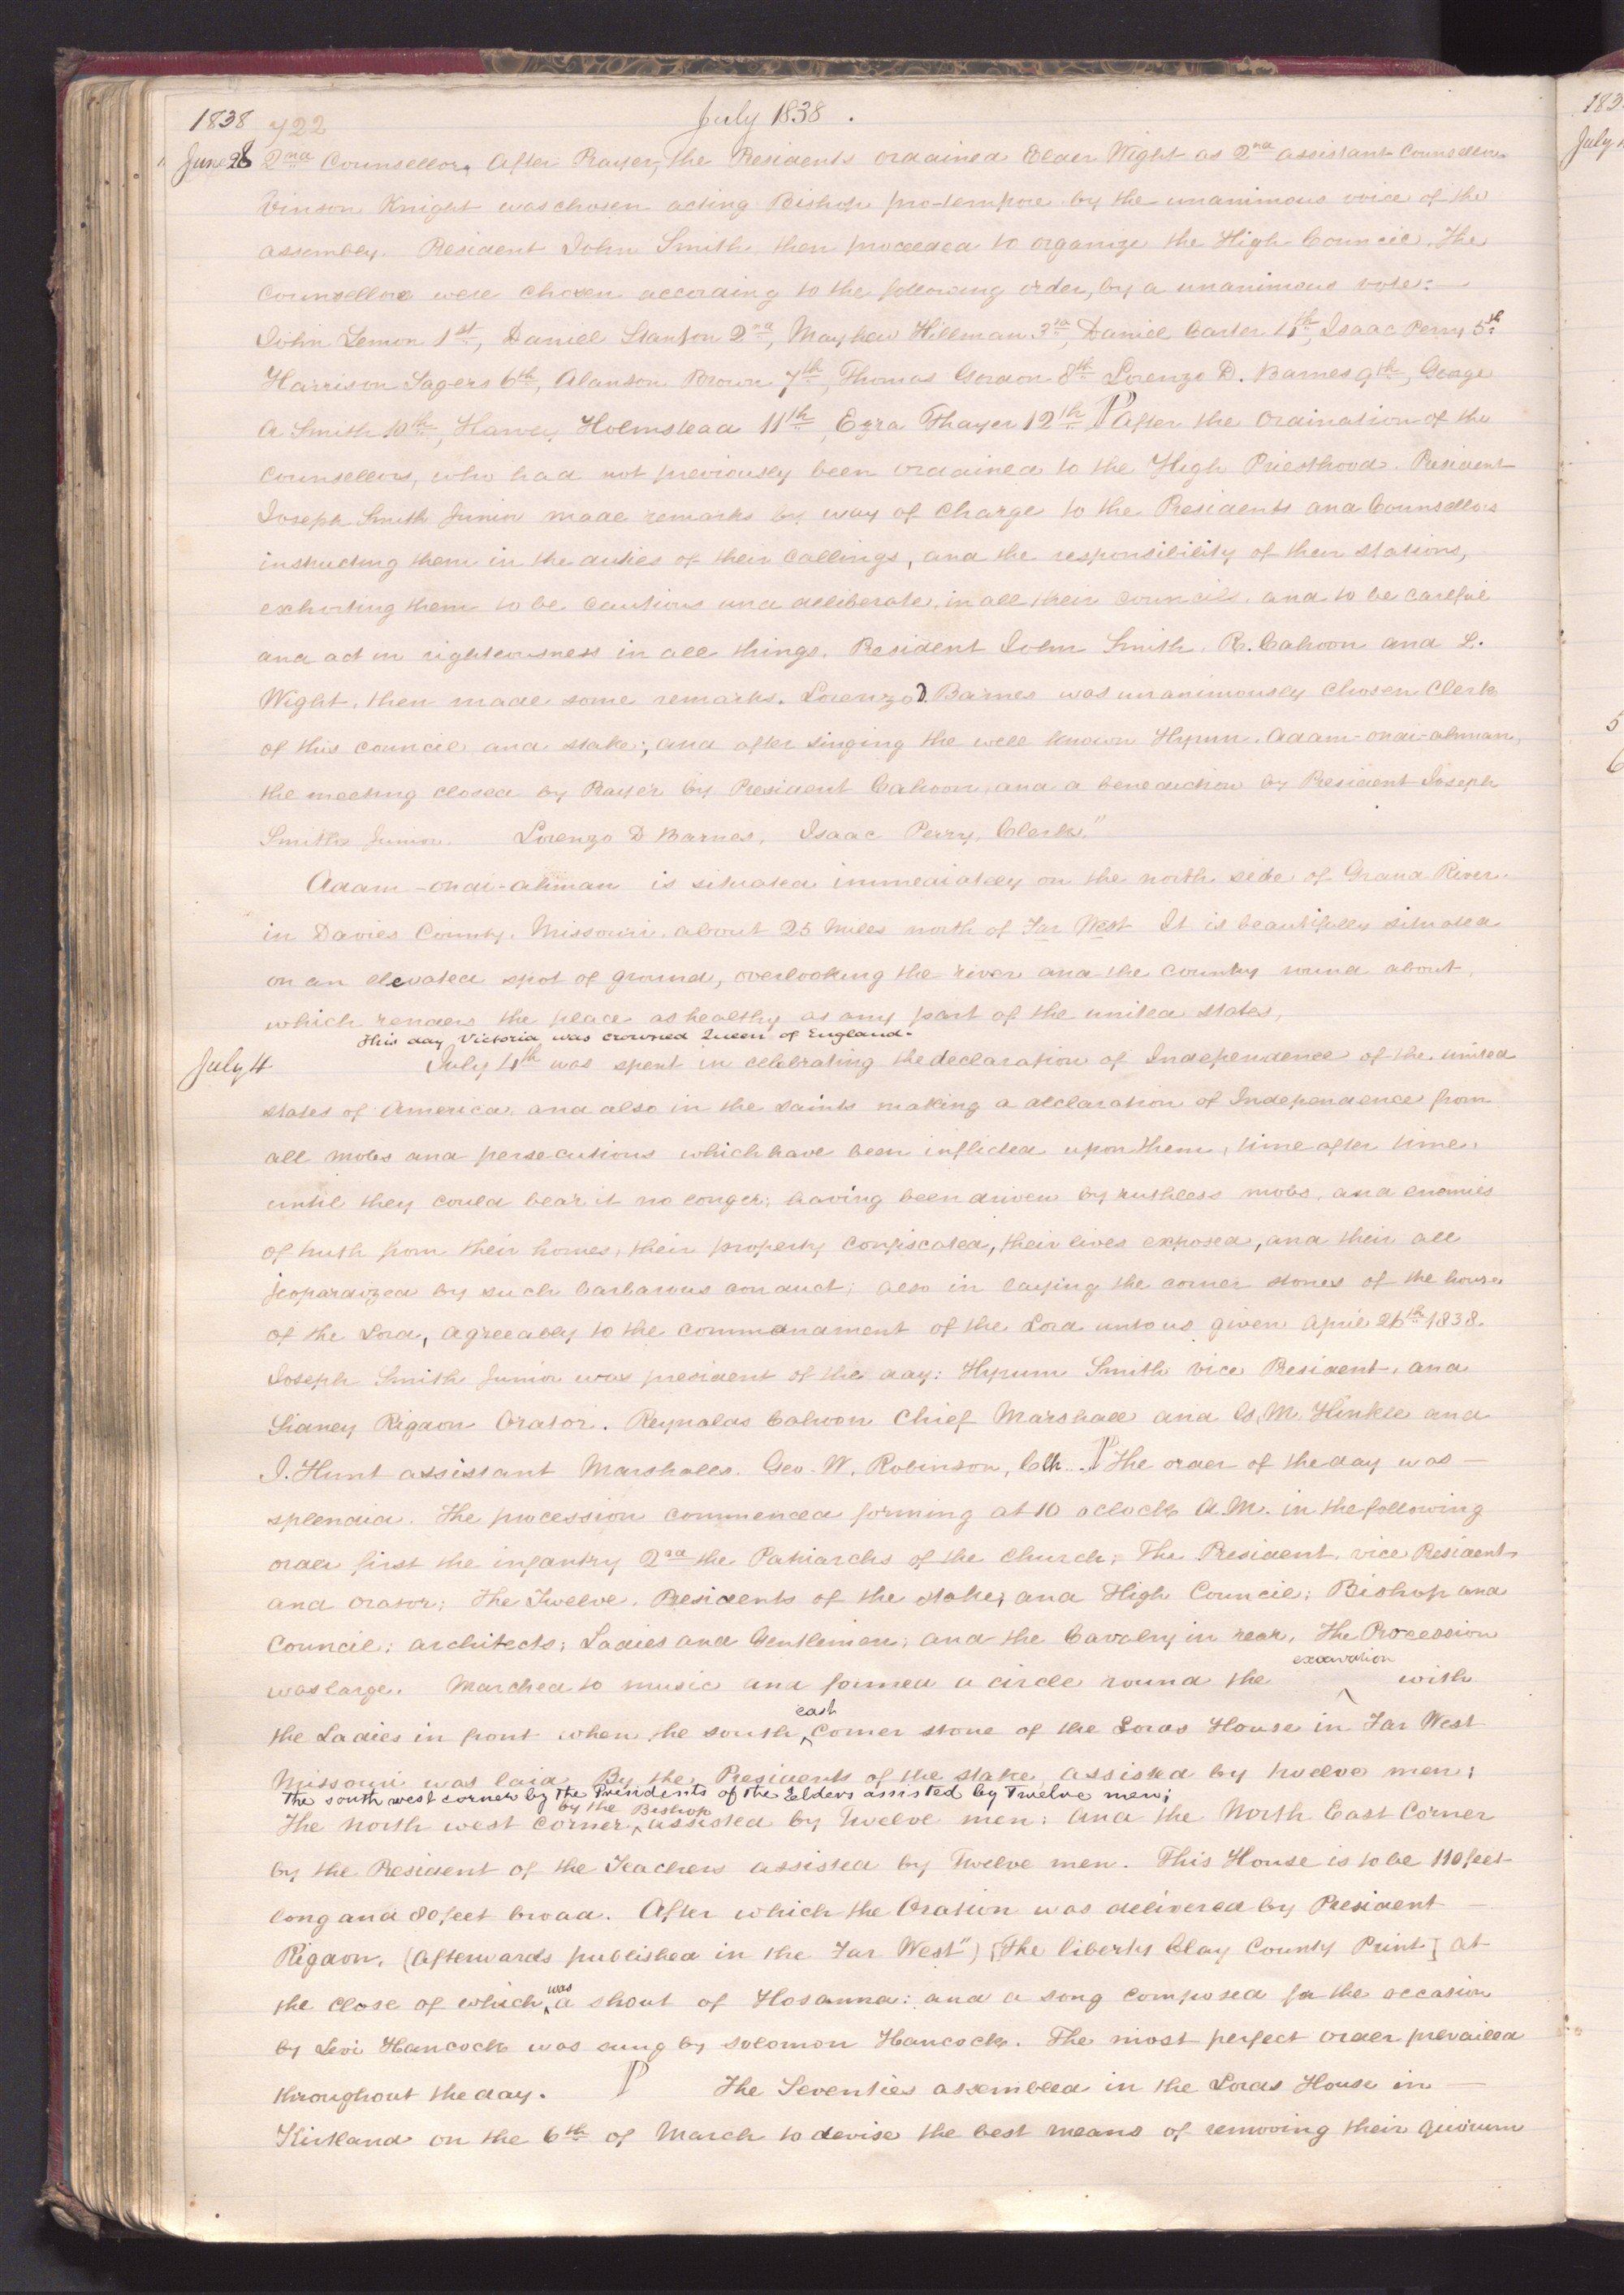 1838 722 July 1838. 183
June 28 2nd Counsellor. After Prayer, the Presidents ordained Elder Wight as 2nd assistant Counsellor. July
Vinson Knight was chosen acting Bishop pro-tempore by the unanimous voice of the
assembly. President John Smith, then proceeded to organize the High Council. The
Counsellors were chosen according to the following order, by a unanimous vote:—
John Lemon 1st, Daniel Stanton 2nd, Mayhew Hillman 3rd, Daniel Carter 4th, Isaac Perry 5th
Harrison Sagers 6th, Alanson Brown 7th, Thomas Gordon 8th Lorenzo D. Barnes 9th, George
A Smith 10th, Harvey Holmstead 11th, Ezra Thayer 12th ¶ After the Ordination of the
counsellors, who had not previously been ordained to the High Priesthood. President
Joseph Smith Junior made remarks by way of charge to the Presidents and Counsellors
instructing them in the duties of their callings, and the responsibility of their stations,
exhorting them to be cautious and deliberate, in all their councils, and to be careful
and act in righteousness in all things. President John Smith, R. Cahoon and L.
Wight, then made some remarks. Lorenzo D. Barnes was unanimously chosen Clerk 5
of this council and stake; and after singing the well known Hymn, Adam-ondi-ahman, 6
the meeting closed by Prayer by President Cahoon, and a benediction by President Joseph
Smith Junior. Lorenzo D Barnes, Isaac Perry, Clerks."
Adam-ondi-ahman is situated immediately on the north side of Grand River.
in Davies County, Missouri, about 25 miles north of Far West. It is beautifully situated
on an elevated spot of ground, overlooking the river and the country round about,
which renders the place as healthy as any part of the united states,
This day Victoria was crowned Queen of England.
July 4 July 4th was spent in celebrating the declaration of Independence of the united
states of America, and also in the saints making a declaration of Independence from
all mobs and persecutions which have been inflicted upon them, time after time,
until they could bear it no longer; having been driven by ruthless mobs, and enemies
of truth from their homes, their property confiscated, their lives exposed, and their all
jeopardized by such barbarous conduct; also in laying the corner stones of the house
of the Lord, agreeably to the commandment of the Lord unto us given April 26th 1838.
Joseph Smith Junior was president of the day: Hyrum Smith Vice President, and
Sidney Rigdon Orator. Reynolds Cahoon Chief Marshall and G. M. Hinkle and
J. Hunt assistant Marshalls. Geo. W. Robinson, Clk. ¶ The order of the day was—
splendid. The procession commenced forming at 10 oclock A.M. in the following
order first the infantry 2nd the Patriarchs of the Church; The President, vice President
and orator; the Twelve, Presidents of the stake, and High Council; Bishop and
Council; architects; Ladies and Gentlemen; and the Cavalry in rear, The Procession
excavation
was large. Marched to music and formed a circle round the ^ with
east
the Ladies in front when the south ^ corner stone of the Lords House in Far West
Missouri was laid By the Presidents of the stake, assisted by twelve men;
The south west corner by the Presidents of the Elders assisted by Twelve men;
by the Bishop
The north west corner ^ assisted by Twelve men: And the North East Corner
by the President of the Teachers assisted by Twelve men. This House is to be 110 feet
long and 80 feet broad. After which the Oration was delivered by President—
Rigdon, (Afterwards published in the Far West") [The liberty Clay County Print] at
was
the close of which ^ a shout of Hosanna: and a song composed for the occasion
by Levi Hancock was sung by Solomon Hancock. The most perfect order prevailed
throughout the day. ¶ The Seventies assembled in the Lords House in—
Kirtland on the 6th of March to devise the best means of removing their quorum